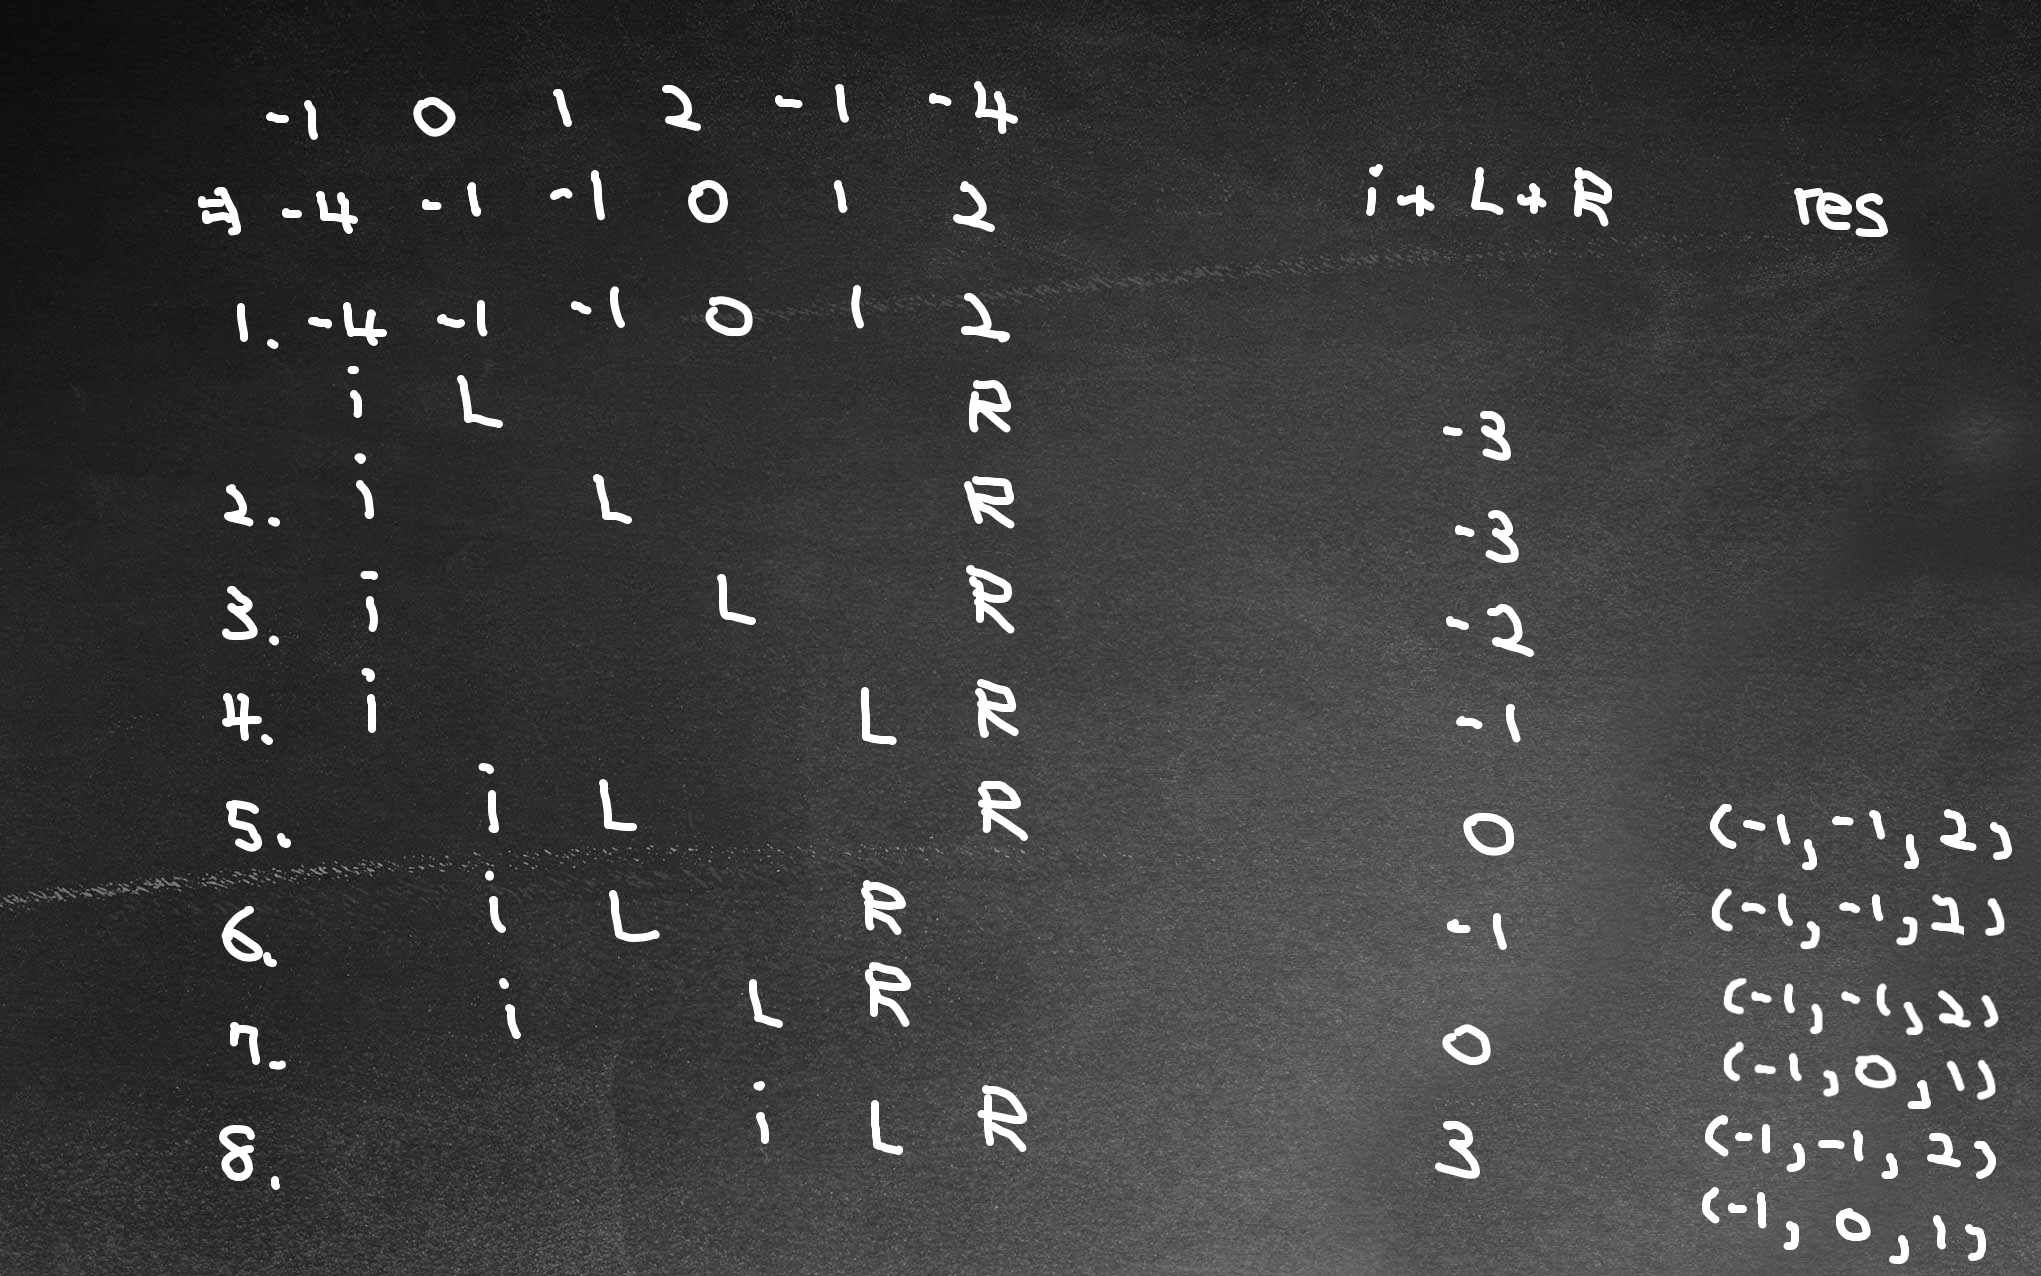 -1 0 1 2 -1 -4
⇒ -4 -1 -1 0 1 2 i+L+R res
1. -4 -1 -1 0 1 2
i L R -3
2. i L R -3
3. i L R -2
4. i L R -1
5. i L R 0 (-1, -1, 2)
6. i L R -1 (-1, -1, 2)
7. i L R 0 (-1, -1, 2)
(-1, 0, 1)
8. i L R 3 (-1, -1, 2)
(-1, 0, 1)